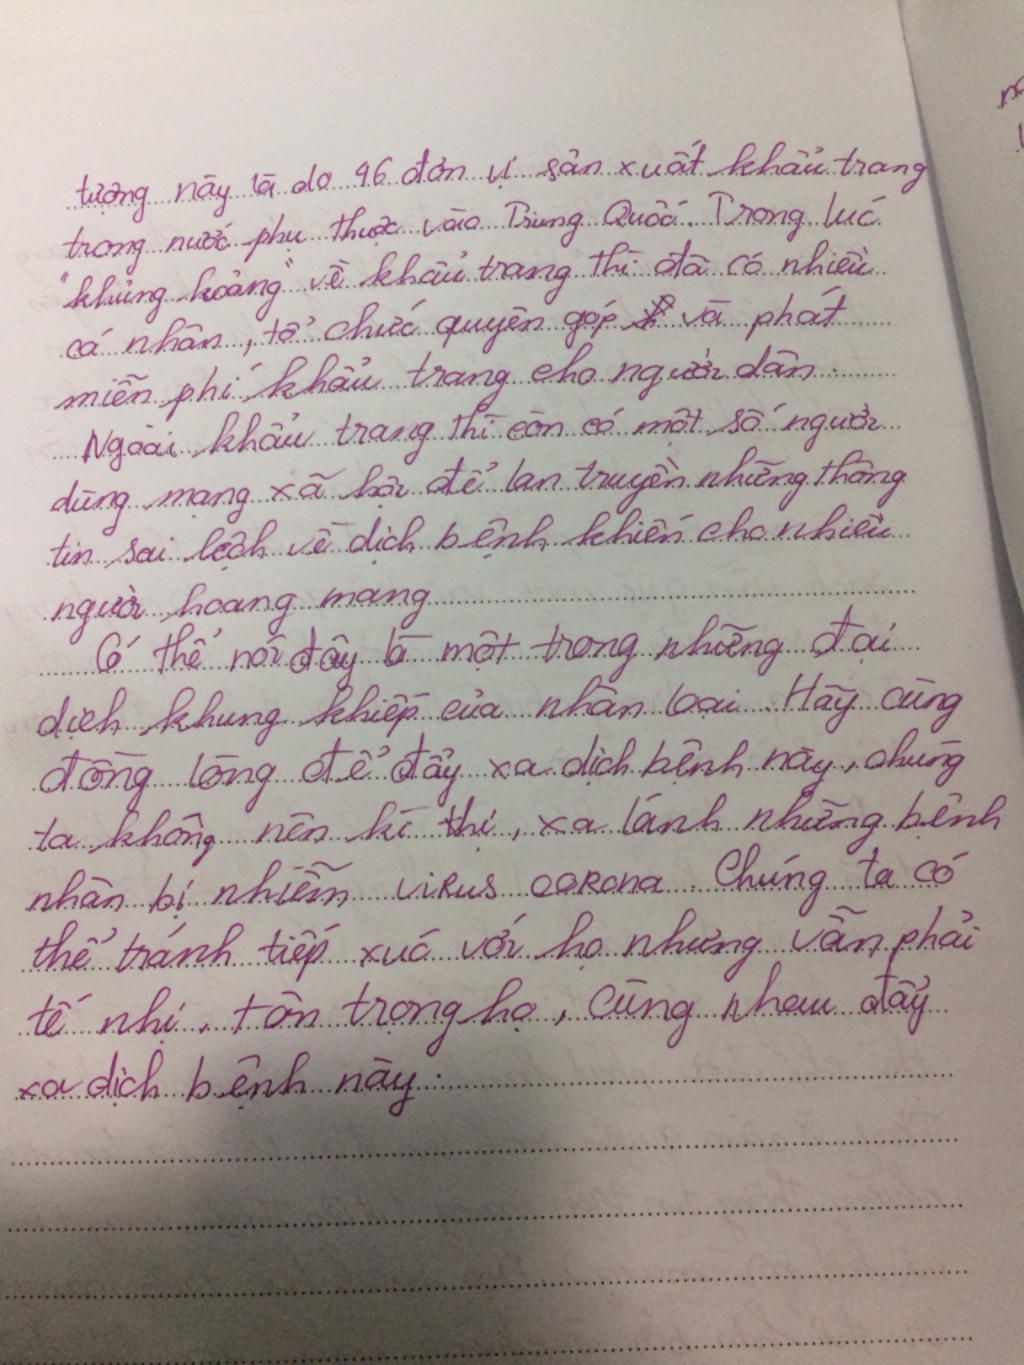 tượng này là do 96 đơn vị sản xuất khẩu trang
trong nước phụ thuộc vào Trung Quốc. Trong lúc
"khủng hoảng" về khẩu trang thì đã có nhiều
cá nhân, tổ chức quyên góp và phát
miễn phí khẩu trang cho người dân.
Ngoài khẩu trang thì còn có một số người
dùng mạng xã hội để lan truyền những thông
tin sai lệch về dịch bệnh khiến cho nhiều
người hoang mang
Có thể nói đây là một trong những đại
dịch khủng khiếp của nhân loại. Hãy cùng
đồng lòng để đẩy xa dịch bệnh này, chúng
ta không nên kì thị, xa lánh những bệnh
nhân bị nhiễm virus corona. Chúng ta có
thể tránh tiếp xúc với họ nhưng vẫn phải
tế nhị, tôn trọng họ, cùng nhau đẩy
xa dịch bệnh này.